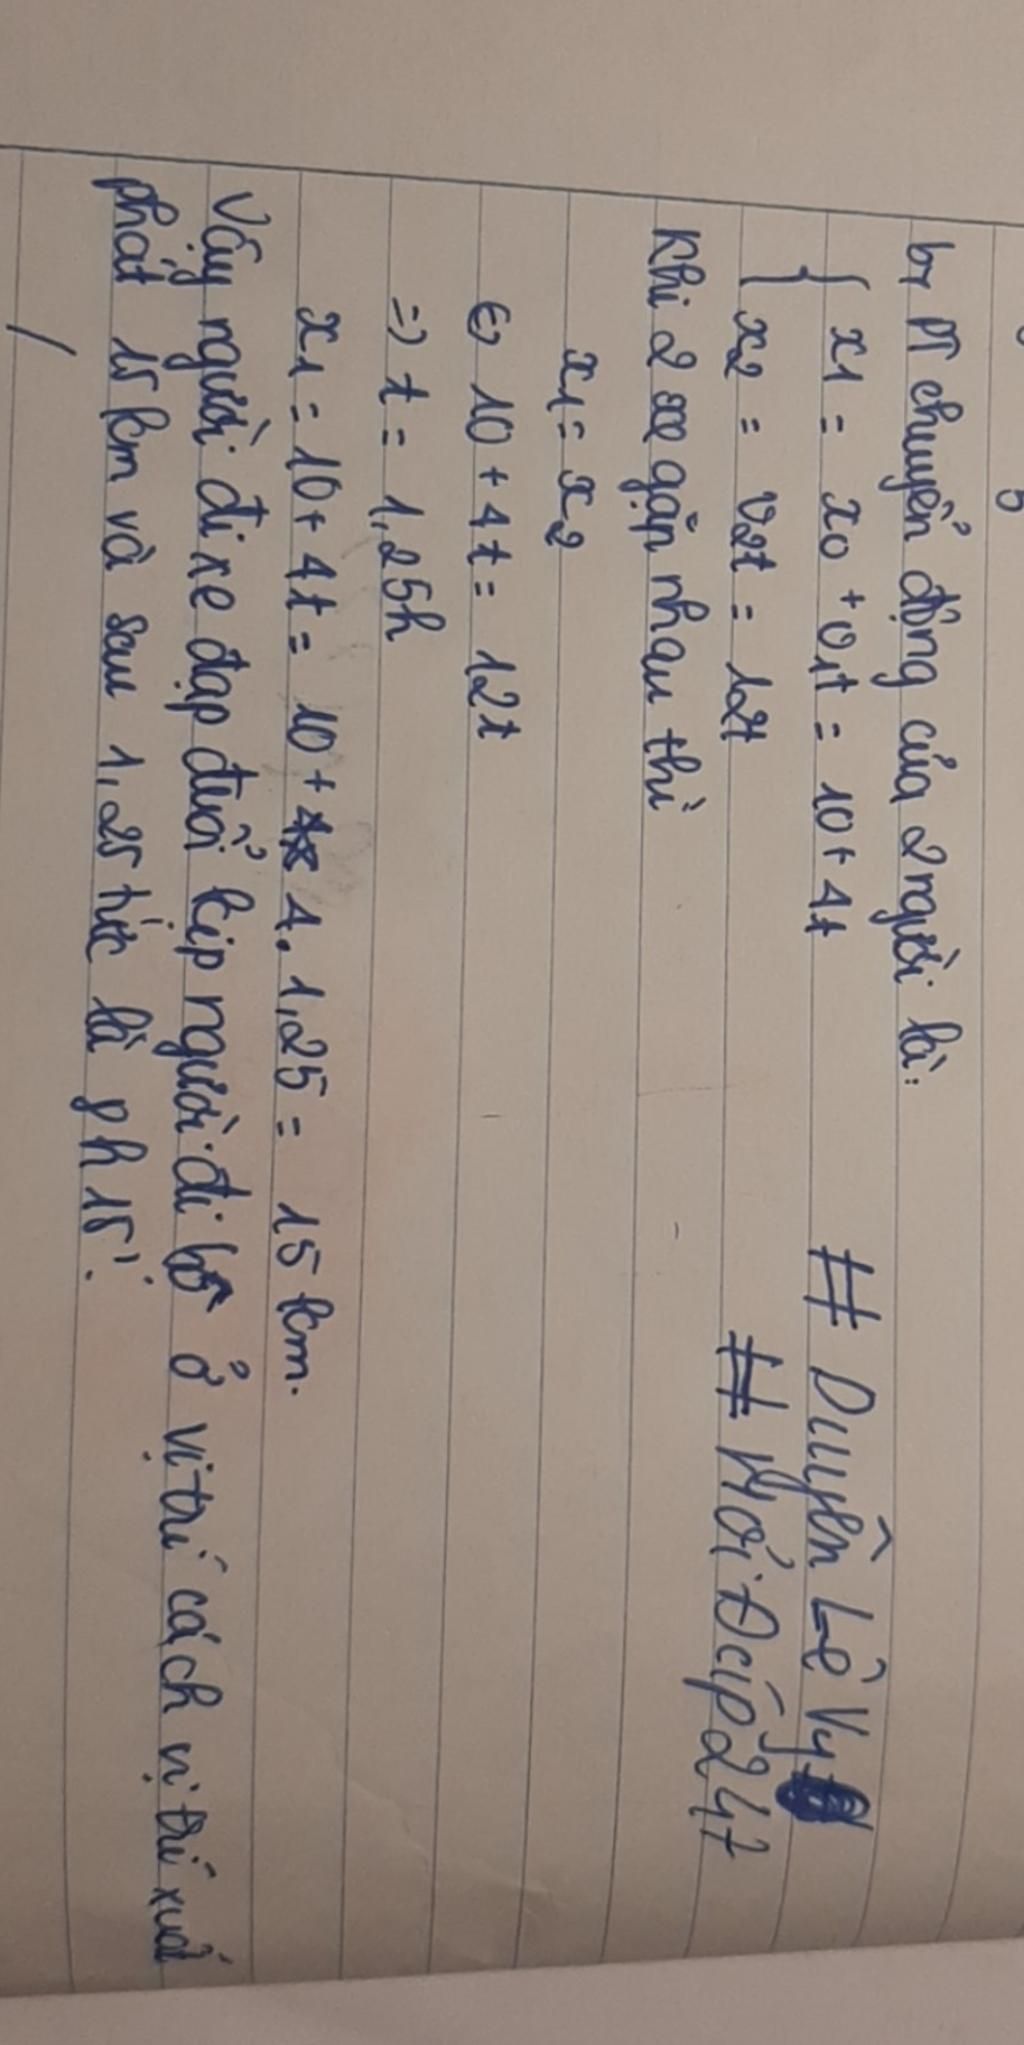 b, PT chuyển động của 2 người là:
x1 = x0 + v1t = 10 + 4t # Duyên Lê Vy
x2 = v2t = 12t # HỏiĐáp247
Khi 2 xe gặp nhau thì
x1 = x2
<=> 10 + 4t = 12t
=> t = 1,25h
x1 = 10 + 4t = 10 + 4. 1,25 = 15 km.
Vậy người đi xe đạp đuổi kịp người đi bộ ở vị trí cách vị trí xuất
phát 15 km và sau 1,25 tức là 8h15'.